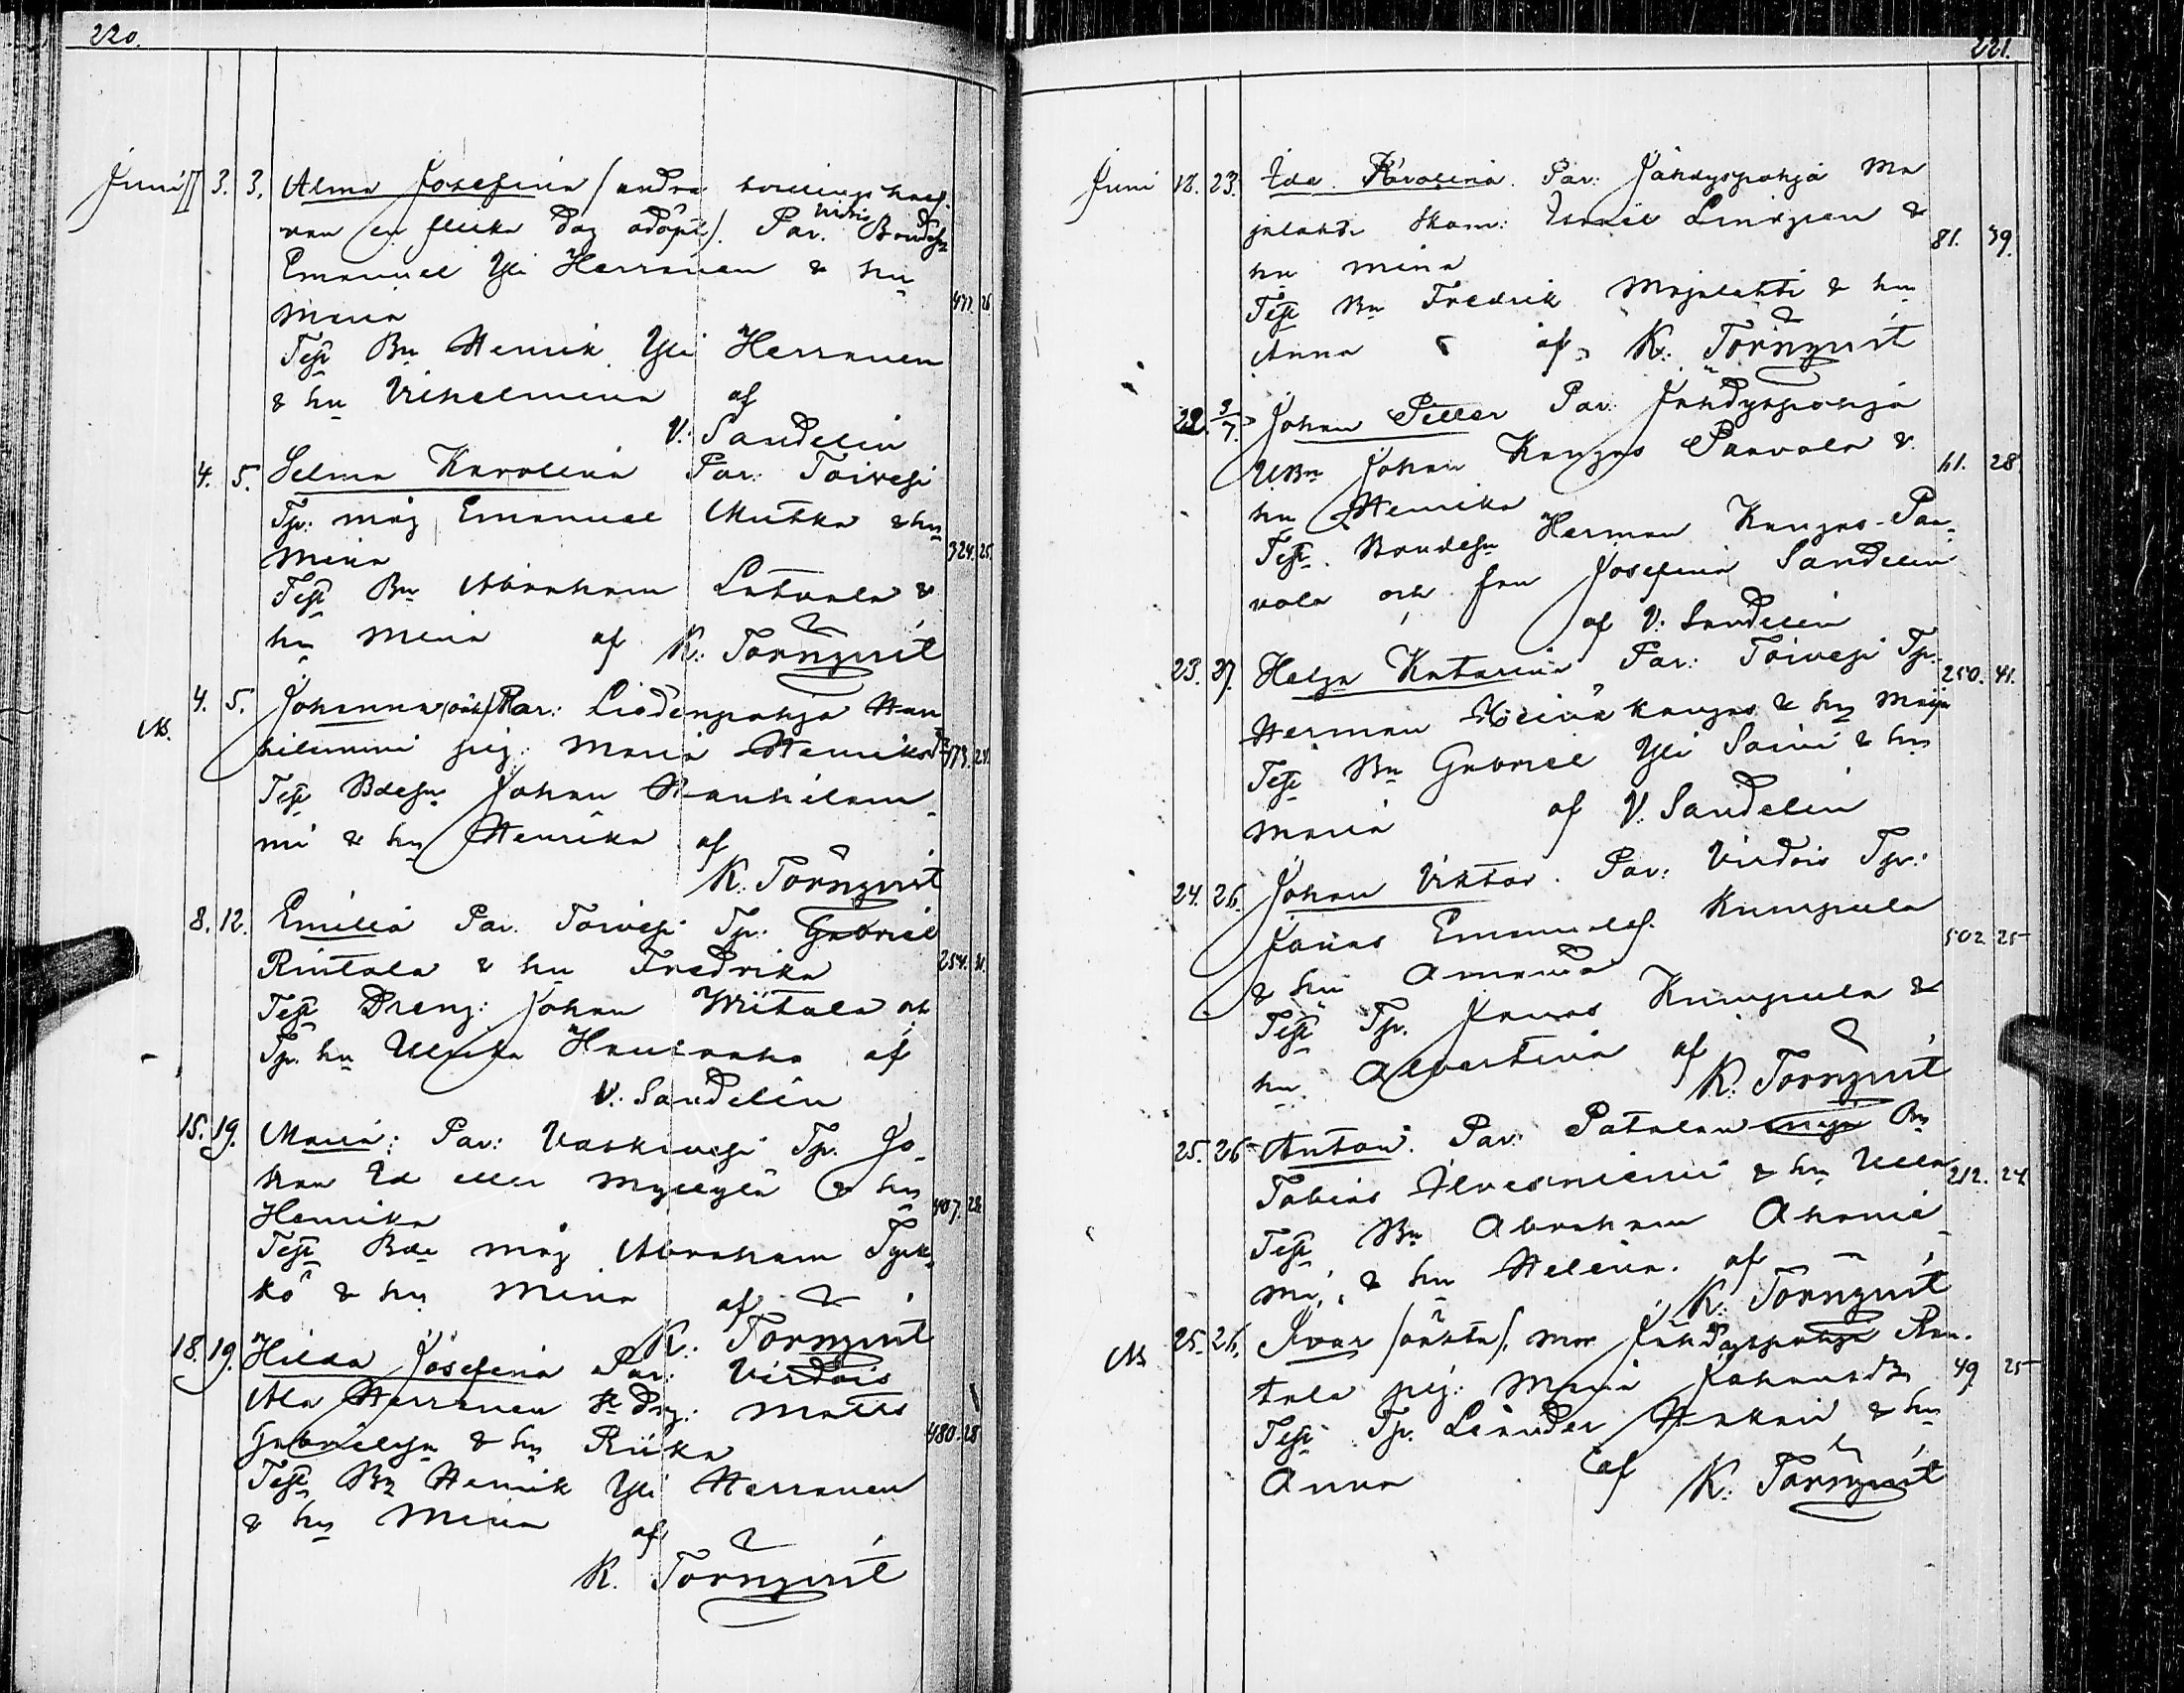 220.
Juni 3. 3. Alma Josefina (andra tvillings half-
van en flicka dog odöpt). Par. Virdois Bondesn
Emanuel Yli Herranen & hu
Maria 477. 26
Test Bn Henrik Yli Herranen
& hu Vilhelmina af
V. Sandelin
4. 5. Selma Karolina Par: Toivesi
Tp: måg Emanuel Mutka & hu
Mina 324. 25.
Test Bn Abraham Latvala &
hu Maria af K: Törnqvist
4. 5. Johanna (oäkt) Par: Liedenpohja Han
NB. hilammi pig: Maria Henriksdr 373. 24.
Test Bdesn Johan Hanhilam-
mi & hu Henrika af
K. Törnqvist
8. 12. Emilia Par. Toivesi Tp: Gabriel
Rintala & hu Fredrika 254. 31.
Test Dreng: Johan Mitala och
Tp. hu Ulrika Hauraaho af
V. Sandelin
15. 19. Maria: Par: Vaskivesi Tp. Jo-
han Ed eller Myllylä & hu
Henrika 407. 28.
Test Bde måg Abraham Tyrk-
kö & hu Mina af
K. Törnqvist
18. 19. Hilda Josefina Par: Virdois
Ala Herranen Dr: Matts
Gabrielsn & hu Riika 480. 28
Test Bn Henrik Yli Herranen
& hu Mina af
K. Törnqvist
221.
Juni 18. 23. Ida Karolina. Par: Jähdyspohja Ma
jalahti Skom: Israel Lindgren &
hu Mina 81. 39.
Test Bn Fredrik Majalahti & hu
Anna af K. Törnqvist
22. 3/7. Johan Petter Par: Jähdyspohja
UBn Johan Kangas Paavola & 61. 28
hu Henrika
Test. Bondesn Herman Kangas-Paa-
vola och fru Josefina Sandelin
af V. Sandelin
23. 27. Helga Katarina Par: Toivesi Tp. 250. 41.
Herman Heinäkangas & hu Maija
Test Bn Gabriel Yli Saini & hu
Maria af V. Sandelin
24. 26. Johan Viktor. Par: Virdois Tp:
Jonas Emanuelsn. Kumpula
& hu Amanda 502. 25
Test Tp. Jonas Kumpula &
hu Albertina af
K. Törnqvist
25. 26 Anton. Par: Patalan Bn
Tobias Ilvesniemi & hu Ulla 212. 24.
Test Bn Abraham Ahonie-
mi, & hu Helena. af
K. Törnqvist
NB 25. 26. Ivar (oäkta). mor Jähdyspohja Ran-
tala pig: Maria Johansdr 49. 25
Test Tp. Leander Hakari & hu
Anna af K. Törnqvist